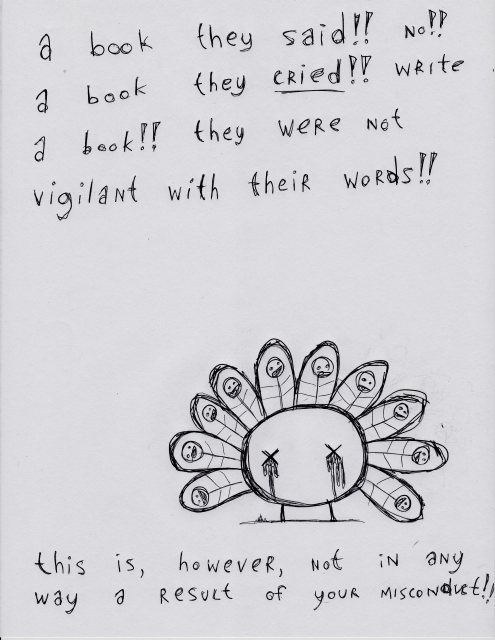 a book they said!! No!!
a book they cried!! write
a book!! they were not
vigilant with their words!!
this is, however, not in any
way a result of your misconduct!!